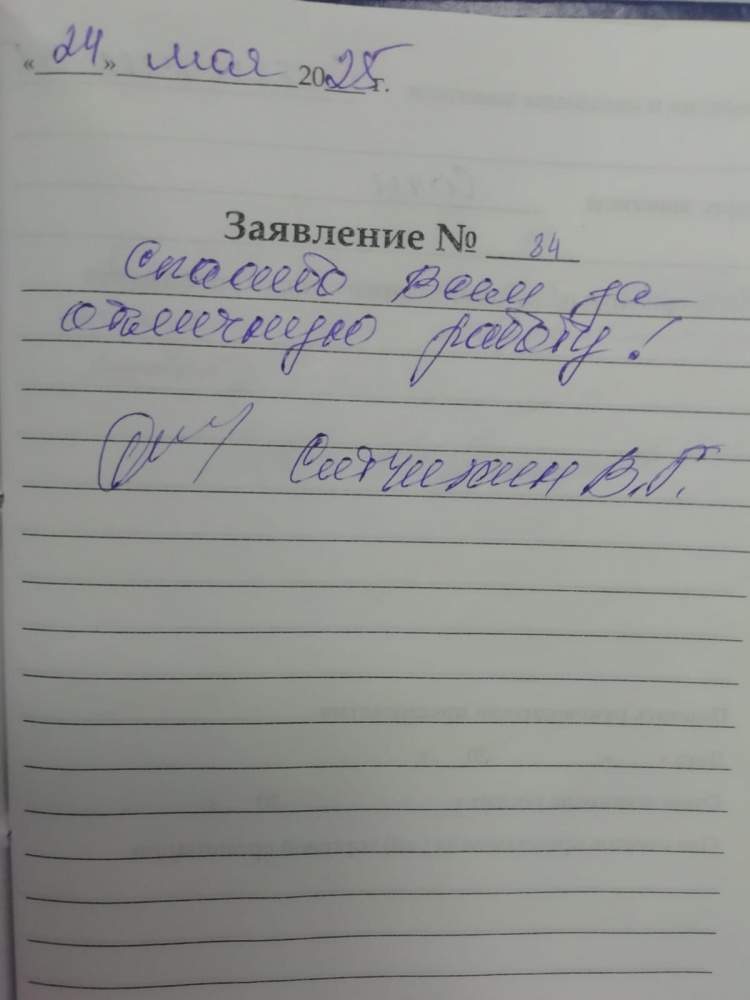 «24» мая 2025 г.
Заявление № 84
Спасибо Всем за
отличную работу!
В.Г.